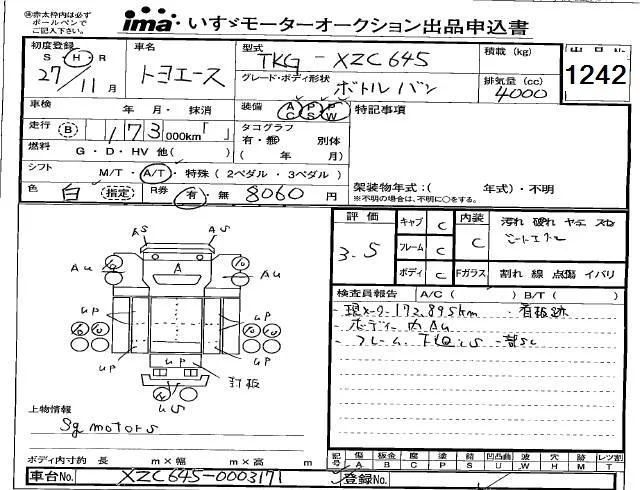 ㊟赤太枠内は必ず
ボールペンで
ご記入下さい。
ima いすゞモーターオークション出品申込書
初度登録 S・H・R 27/11月
車名 トヨエース
型式 TKG-XZC645
グレード・ボディ形状 ボトルバン
積載(kg)
排気量(cc) 4000
出品No.
1242
車検 年・月・抹消
装備 AC PS PW
特記事項
走行 B 173,000km「 」
タコグラフ 有・無 別体 ( 年 月)
燃料 G・D・HV 他( )
シフト M/T・A/T・特殊(2ペダル・3ペダル)
色 白 指定 R券 有・無 8060円
架装物年式:( 年式)・不明
※不明の場合は、不明に○をする。
評価 3.5
キャブ C
フレーム C
ボディ C
内装 C
汚れ 破れ ヤニ スレ
Fガラス 割れ 線 点傷 イバリ
検査員報告 A/C( ) B/T( )
現メーター172,895km 看板跡
ボディー内AU
フレーム下回りS 一部SC
AS AS
A
AU AU
UP UP
UP UP
UP
打板
US
上物情報
Sg motors
ボディ内寸約 長 m×幅 m×高 m
記号 傷 板金 腐 塗 錆 凹凸曲 波 穴 跡 レツ割
A B C P S U W H M T
車台No. XZC645-0003171
登録No.